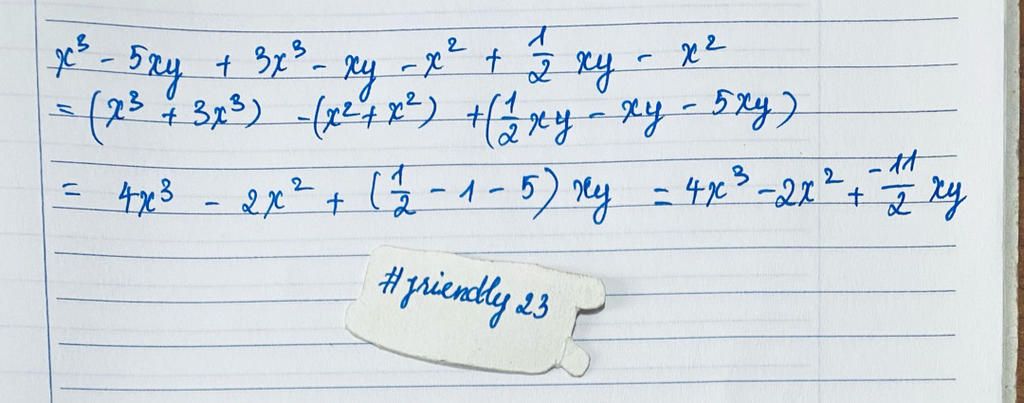 x³ - 5xy + 3x³ - xy - x² + 1/2 xy - x²
= (x³ + 3x³) - (x² + x²) + (1/2 xy - xy - 5xy)
= 4x³ - 2x² + (1/2 - 1 - 5) xy = 4x³ - 2x² + -11/2 xy
#friendly 23